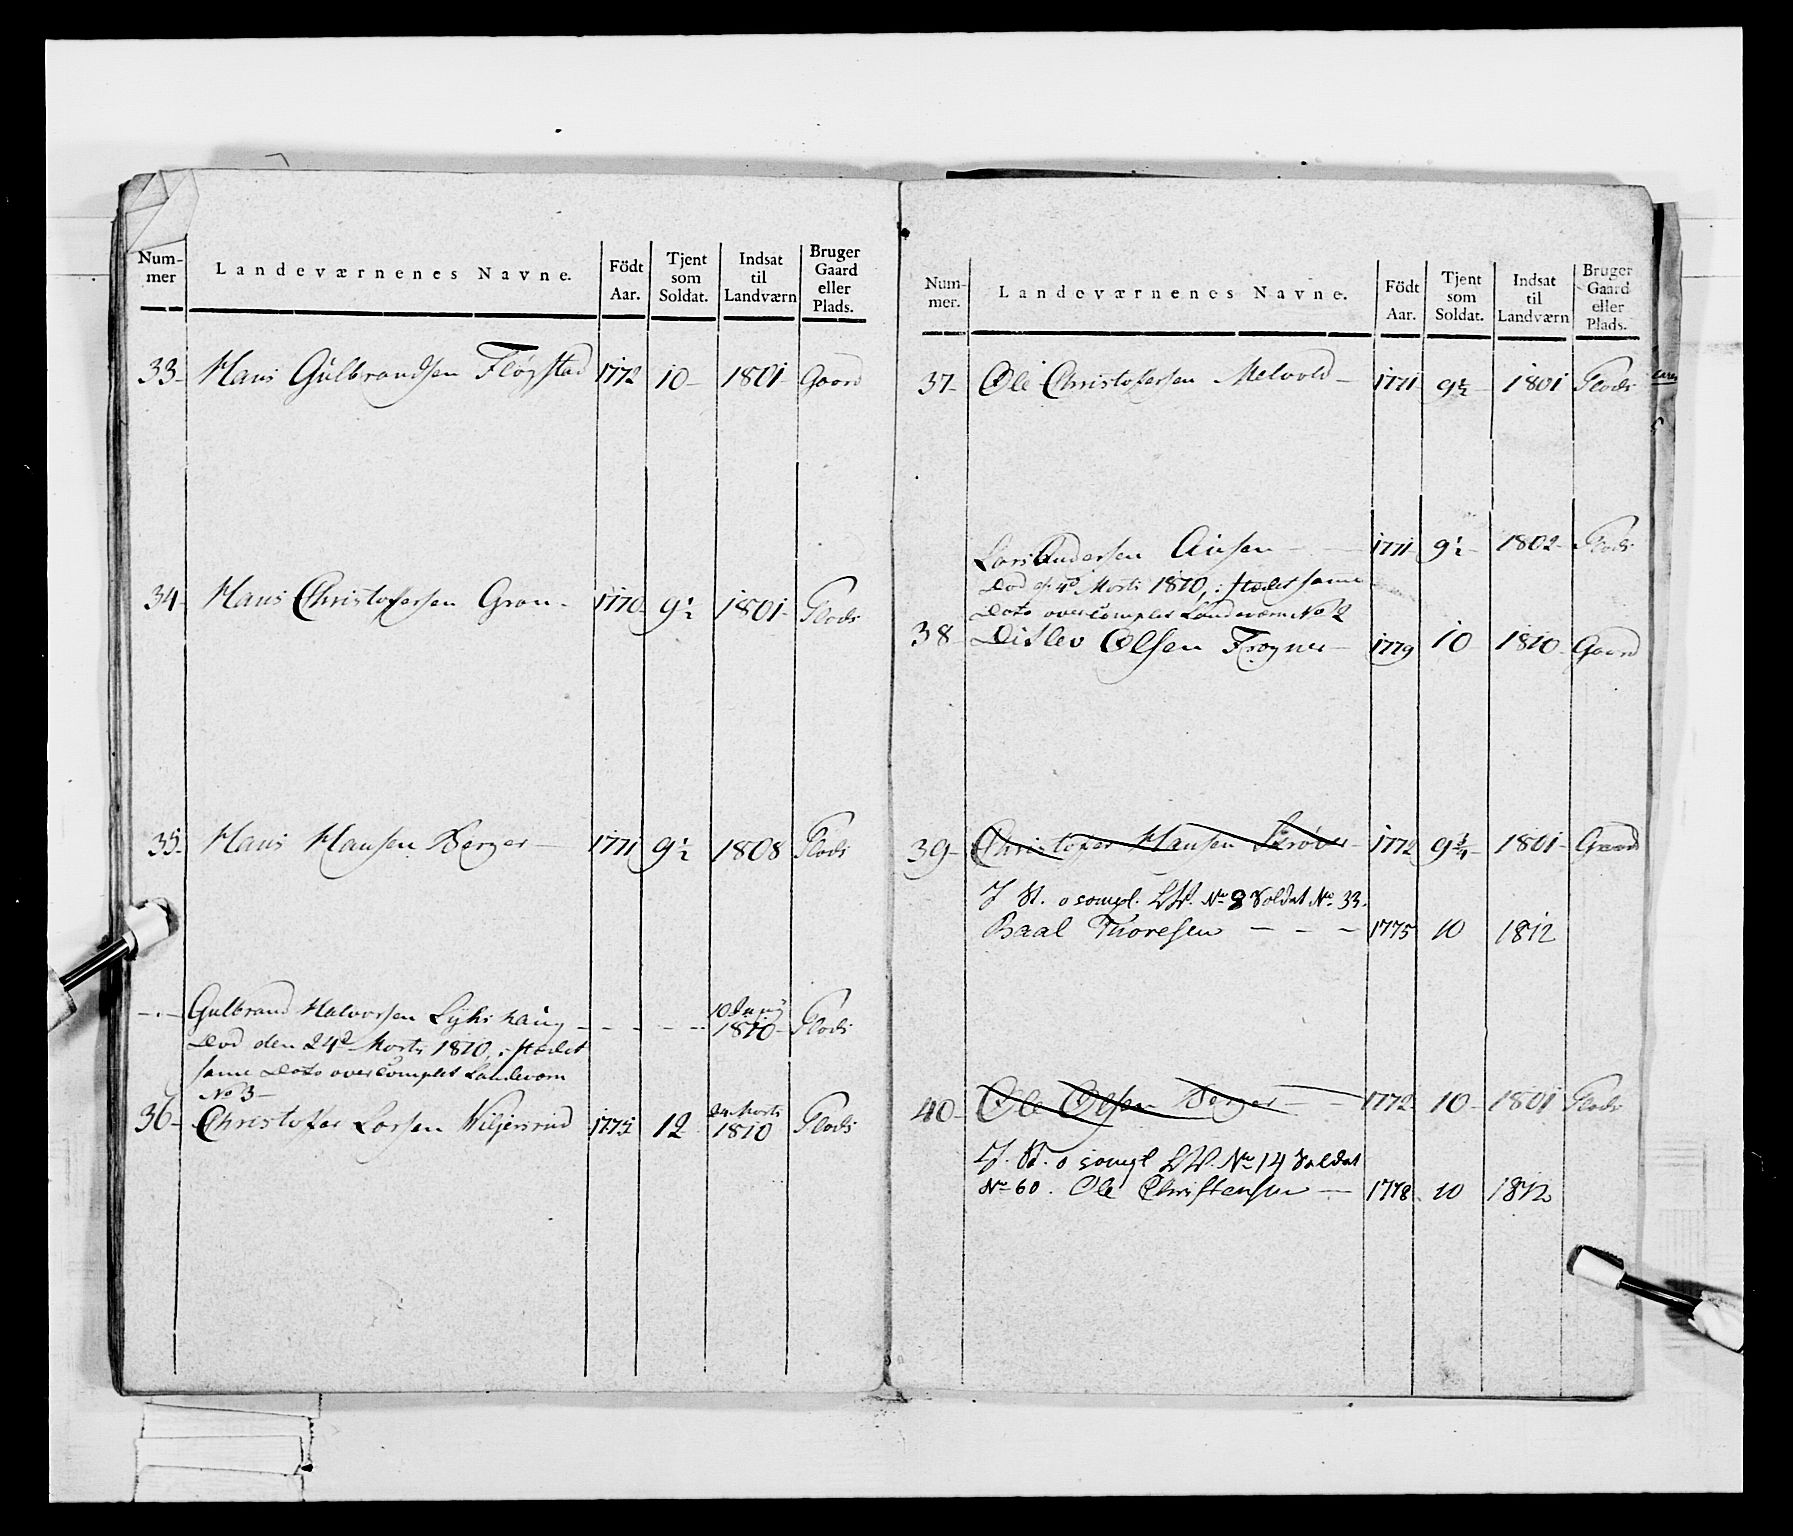 Num-
mer
Landeværnenes Navne.
Födt
Aar.
Tjent
som
Soldat.
Indsat
til
Landværn
Bruger
Gaard
eller
Plads.
33- Hans Gulbrandsen Fløgstad 1772 10- 1801- Gaard
34- Hans Christofersen Gran- 1770- 9½ 1801- Plads
35- Hans Hansen Berger- 1771 9½ 1808 Plads
- - Gulbrand Halvorsen 10 Junij
1810- Plads
Død den 24d Marts 1810, i stedet
same Dato overcomplet Landeværn
No 3-
36- Christofer Larsen 1775 12 24 Marts
1810 Plads
Num-
mer.
Landeværnenes Navne.
Födt
Aar.
Tjent
som
Soldat.
Indsat
til
Landværn
Bruger
Gaard
eller
Plads.
37- Ole Christofersen Melvold- 1771 9½ 1801 Plads
Lars Andersen - 1771 9½ 1802- Plads
Død d. 4d Marts 1810, i stedet same
Dato overcomplet Landeværn No 2
38- Ditlev Olsen Frogner- 1779 10 1810- Gaard
39- Christofer Hansen - 1772 9¾ 1801- Gaard
I St. o compl. LW. No 8 Soldat No 33.
Paal Thoresen - - - 1775 10 1812
40- Ole Olsen Berger - - 1772- 10- 1801 Plads
I. St. o compl LW. No 14 Soldat
No 60. Ole Christensen - 1778 10 1812